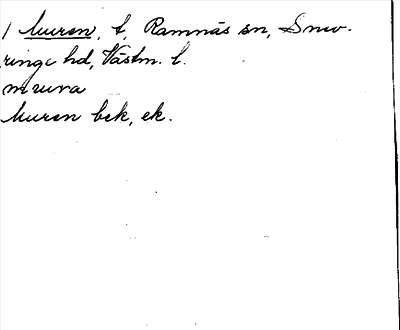 / Muren, t, Ramnäs sn, Snev-
ringe hd, Västm. l.
murva
Muren bek, ek.